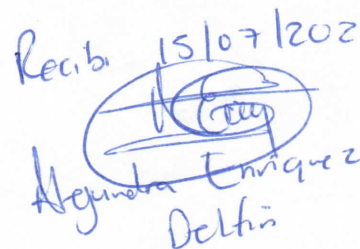 Recibí 15/07/202
Alejandra Enriquez
Delfin